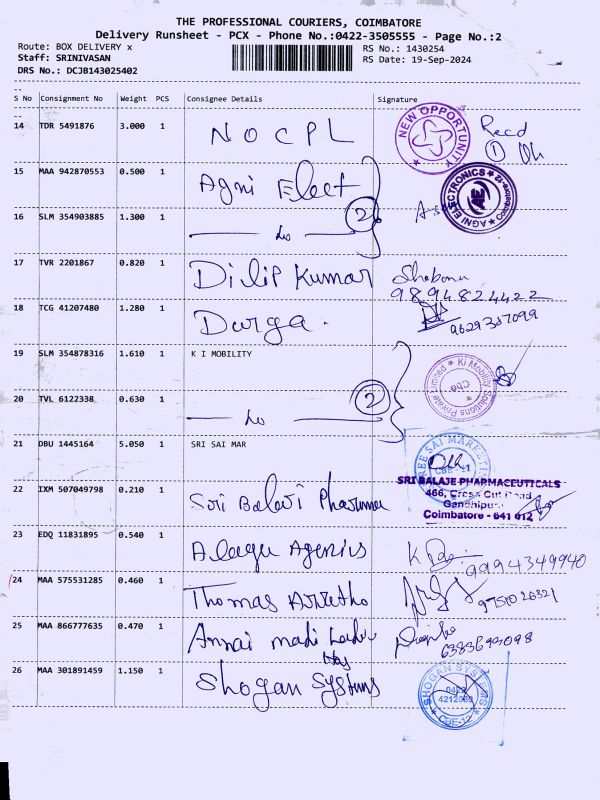 THE PROFESSIONAL COURIERS, COIMBATORE
Delivery Runsheet - PCX - Phone No.:0422-3505555 - Page No.:2
Route: BOX DELIVERY x
RS No.: 1430254
Staff: SRINIVASAN
RS Date: 19-Sep-2024
DRS No.: DCJB143025402
S No Consignment No Weight PCS Consignee Details Signature
14 TDR 5491876 3.000 1 NOCPL NEW OPPORTUNITY Recd
1
15 MAA 942870553 0.500 1 Agni Elect AGNI ELECTRONICS
16 SLM 354903885 1.300 1 do 2
17 TVR 2201867 0.820 1 Dilip Kumar
9894824422
18 TCG 41207480 1.280 1 Durga. 9629357099
19 SLM 354878316 1.610 1 K I MOBILITY Ki Mobility Solutions Private Limited Cbe
20 TVL 6122338 0.630 1 do 2
21 DBU 1445164 5.050 1 SRI SAI MAR SREE SAI MARKETING CBE-11
22 IXM 507049798 0.210 1 Sri Balaji Pharma SRI BALAJE PHARMACEUTICALS
466, Cross Cut Road
Gandhipuram
Coimbatore - 641 012
23 EDQ 11831895 0.540 1 Alagu Agencies 9994349940
24 MAA 575531285 0.460 1 Thomas 9751026321
25 MAA 866777635 0.470 1 Annai madi
6383699098
26 MAA 301891459 1.150 1 Shogan Systems SHOGAN SYSTEMS 0422 CBE-12